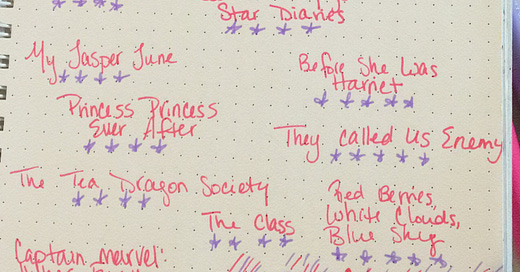 Star Diaries
My Jasper June
Before She Was
Harriet
Princess Princess
Ever After
They Called Us Enemy
The Tea Dragon Society
Red Berries,
White Clouds,
Blue Sky
The Class
Captain Marvel: